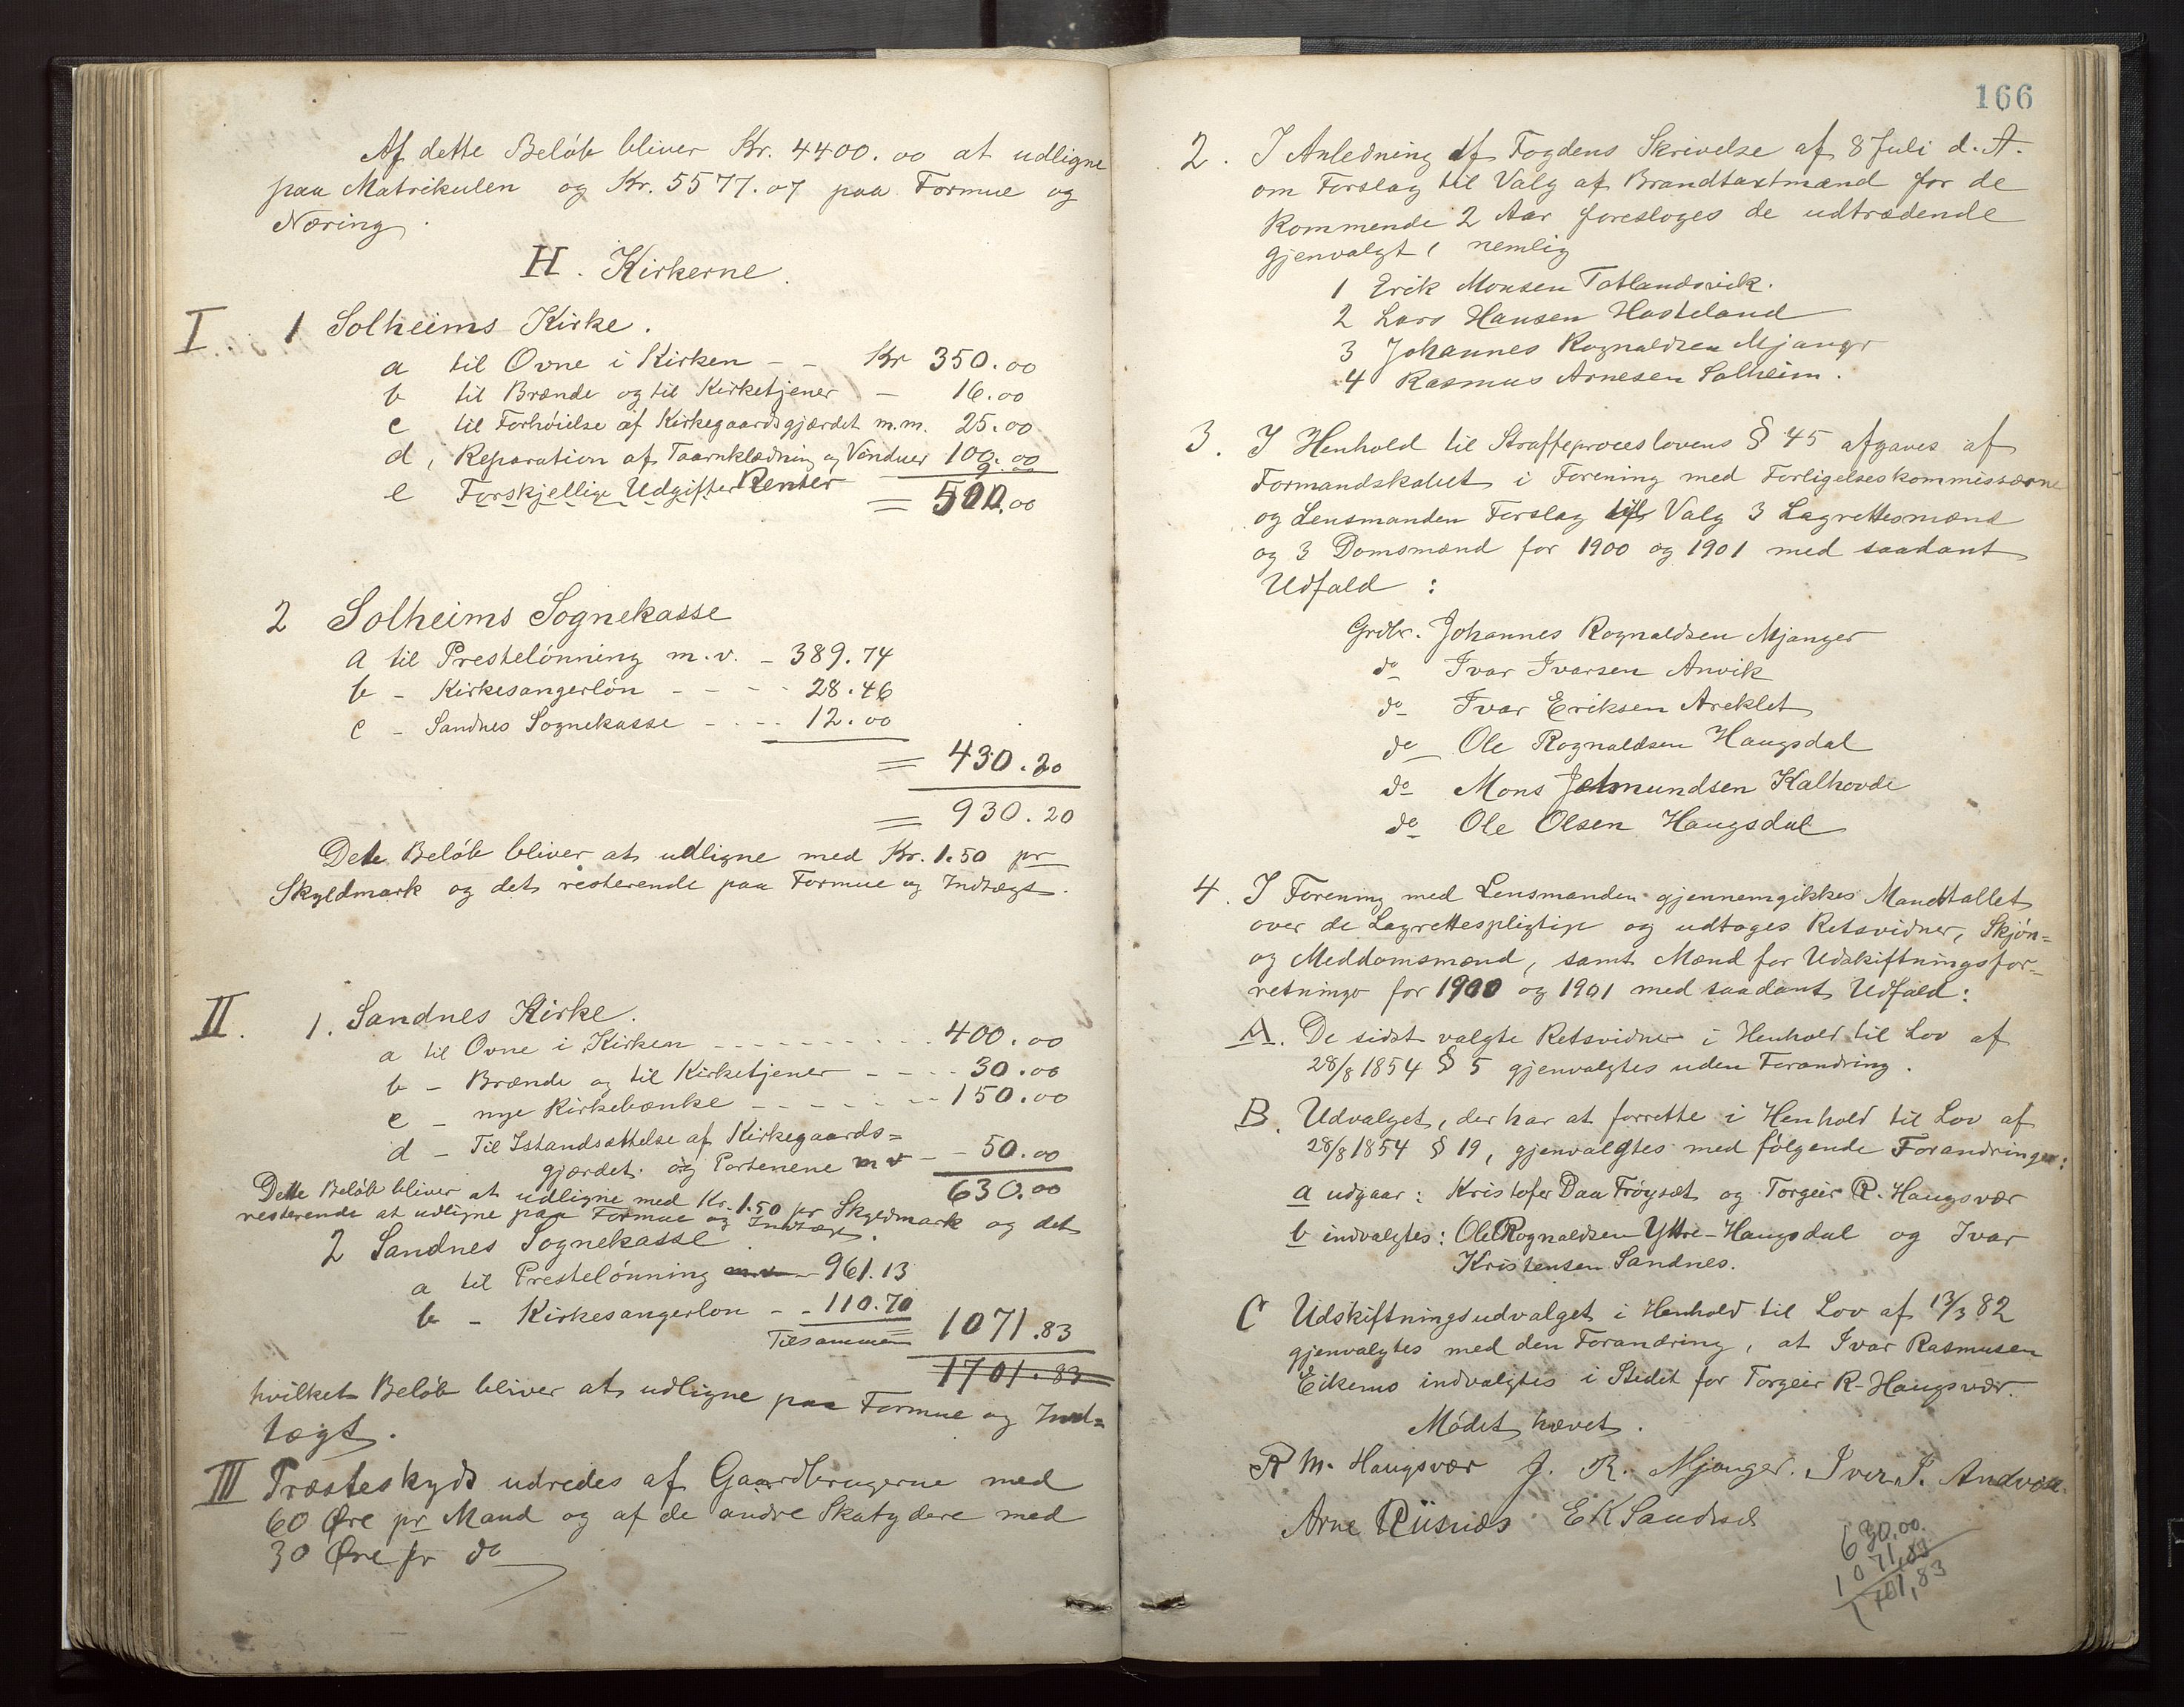 Af dette Beløb bliver Kr. 4400.00 at udligne
paa Matrikulen og Kr. 5577.07 paa Formue og
Næring.
H. Kirkerne.
I 1 Solheims Kirke.
a til Ovne i Kirken – – Kr 350.00
b til Brænde og til Kirketjener – 16.00
c til Forhøielse af Kirkegaardsgjærdet m.m. 25.00
d, Reparation af Taarnklædning og Vinduer 100.00
e Forskjellige Udgifter Renter 9
= 500.00
2 Solheims Sognekasse
a til Prestelønning m.v. – 389.74
b – Kirkesangerløn – – – – 28.46
c – Sandnes Sognekasse – – – – 12.00
= 430.20
= 930.20
Dette Beløb bliver at udligne med Kr. 1.50 pr
Skyldmark og det resterende paa Formue og Indtægt.
II. 1. Sandnes Kirke.
a til Ovne i Kirken – – – – – – – – – 400.00
b – Brænde og til Kirketjener – – – – 30.00
c – nye Kirkebænke – – – – – – – 150.00
d – Til Istandsættelse af Kirkegaards=
gjærdet og Portenene m v – – 50.00
630.00
Dette Beløb bliver at udligne med Kr. 1.50 pr Skyldmark og det
resterende at udligne paa Formue og Indtægt.
2 Sandnes Sognekasse
a til Prestelønning m.v. – 961.13
b – Kirkesangerløn – – 110.70
Tilsammen = 1071.83
1701.83
hvilket Beløb bliver at udligne paa Formue og Ind=
tægt.
III Præsteskyds udredes af Gaardbrugerne med
60 Øre pr Mand og af de andre Skatydere med
30 Øre pr do
166
2. I Anledning af Fogdens Skrivelse af 8 Juli d. A.
om Forslag til Valg af Brandtaxtmænd for de
kommende 2 Aar foresloges de udtrædende
gjenvalgt, nemlig
1 Erik Monsen Totlandsvik.
2 Lars Hansen Hosteland
3 Johannes Rognaldsen Mjanger
4 Rasmus Arnesen Solheim.
3. I Henhold til Straffeproceslovens § 45 afgaves af
Formandskabet i Forening med Forligelseskommissærne
og Lensmanden Forslag til Valg 3 Lagrettesmænd
og 3 Domsmænd for 1900 og 1901 med saadant
Udfald :
Grdbr. Johannes Rognaldsen Mjanger
do Ivar Ivarsen Anvik
do Ivar Eriksen Areklet
do Ole Rognaldsen Haugsdal
do Mons Jetmundsen Kalhovde
do Ole Olsen Haugsdal
4. I Forening med Lensmanden gjennemgikkes Mandtallet
over de Lagrettespligtige og udtoges Retsvidner, Skjøn=
og Meddomsmænd, samt Mænd for Udskiftningsfor=
retninger for 1900 og 1901 med saadant Udfald:
A. De sidst valgte Retsvidner i Henhold til Lov af
28/8 1854 § 5 gjenvalgtes uden Forandring.
B. Udvalget, der har at forrette i Henhold til Lov af
28/8 1854 § 19, gjenvalgtes med følgende Forandringer:
a udgaar: Kristofer Daa Frøyset og Torgeir R. Haugsvær
b indvalgtes: Ole Rognaldsen Yttre-Haugsdal og Ivar
Kristensen Sandnes.
C Udskiftningsudvalget i Henhold til Lov af 13/3 82
gjenvalgtes med den Forandring, at Ivar Rasmusen
Eikemo indvalgtes i Stedet for Torgeir R. Haugsvær.
Mødet hævet.
R M. Haugsvær J. R. Mjanger. Iver I. Andvik.
Arne Riisnæs E K Sandnes
630,00
1071,83
1701,83